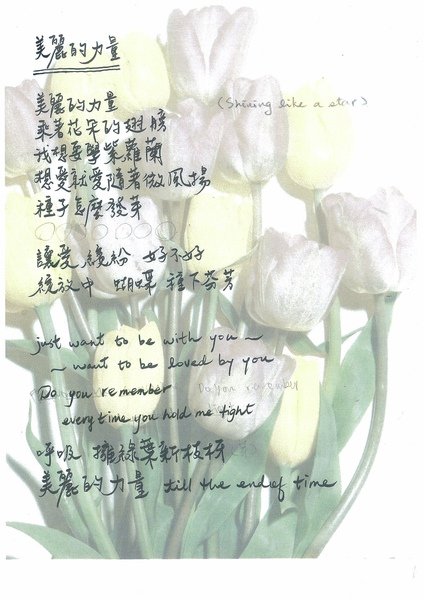 美麗的力量
美麗的力量 (Shining like a star)
乘著花朵的翅膀
我想要學紫蘿蘭
想愛就愛隨著微風揚
種子怎麼發芽
○○○○○○○
讓愛繽紛 好不好
綻放中 蝴蝶 種下芬芳
just want to be with you ~
~ want to be loved by you
Do you remember Do you remember
every time you hold me tight
呼吸 擁綠葉新枝枒
美麗的力量 till the end of time